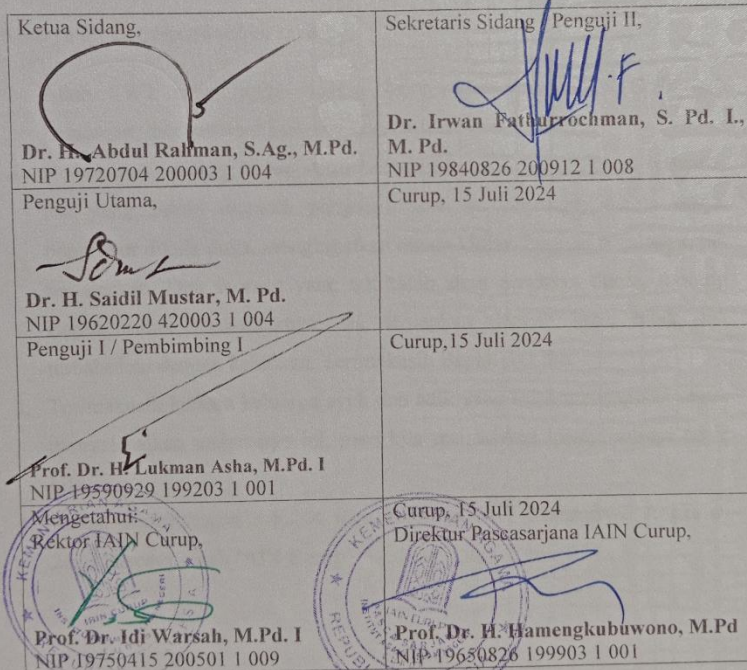 Ketua Sidang,
Dr. H. Abdul Rahman, S.Ag., M.Pd.
NIP 19720704 200003 1 004
Sekretaris Sidang / Penguji II,
Dr. Irwan Fathurrochman, S. Pd. I.,
M. Pd.
NIP 19840826 200912 1 008
Penguji Utama,
Dr. H. Saidil Mustar, M. Pd.
NIP 19620220 420003 1 004
Curup, 15 Juli 2024
Penguji I / Pembimbing I
Prof. Dr. H. Lukman Asha, M.Pd. I
NIP 19590929 199203 1 001
Curup,15 Juli 2024
Mengetahui:
Rektor IAIN Curup,
Prof. Dr. Idi Warsah, M.Pd. I
NIP 19750415 200501 1 009
Curup, 15 Juli 2024
Direktur Pascasarjana IAIN Curup,
Prof. Dr. H. Hamengkubuwono, M.Pd
NIP 19650826 199903 1 001
KEMENTERIAN AGAMA
IAIN CURUP
KEMENTERIAN AGAMA
IAIN CURUP